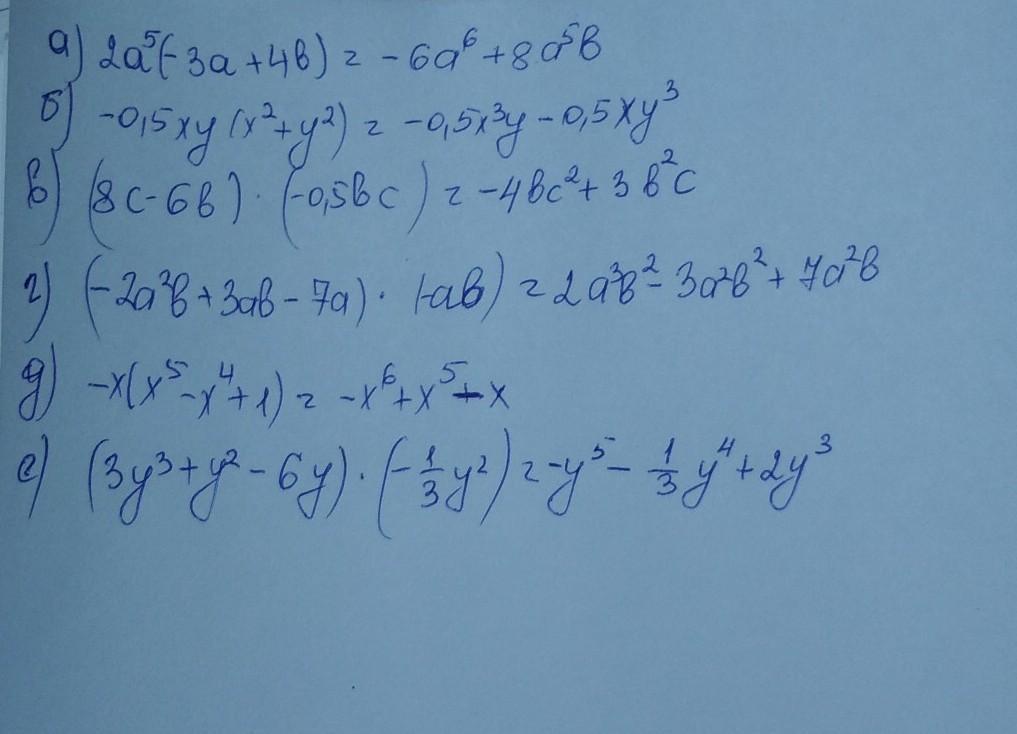 а) 2a⁵(-3a+4b) = -6a⁶+8a⁵b
б) -0,5xy(x²+y²) = -0,5x³y-0,5xy³
в) (8c-6b)·(-0,5bc) = -4bc²+3b²c
г) (-2a²b+3ab-7a)·(-ab) = 2a³b²-3a²b²+7a²b
д) -x(x⁵-x⁴+1) = -x⁶+x⁵-x
е) (3y³+y²-6y)·(-1/3y²) = -y⁵-1/3y⁴+2y³